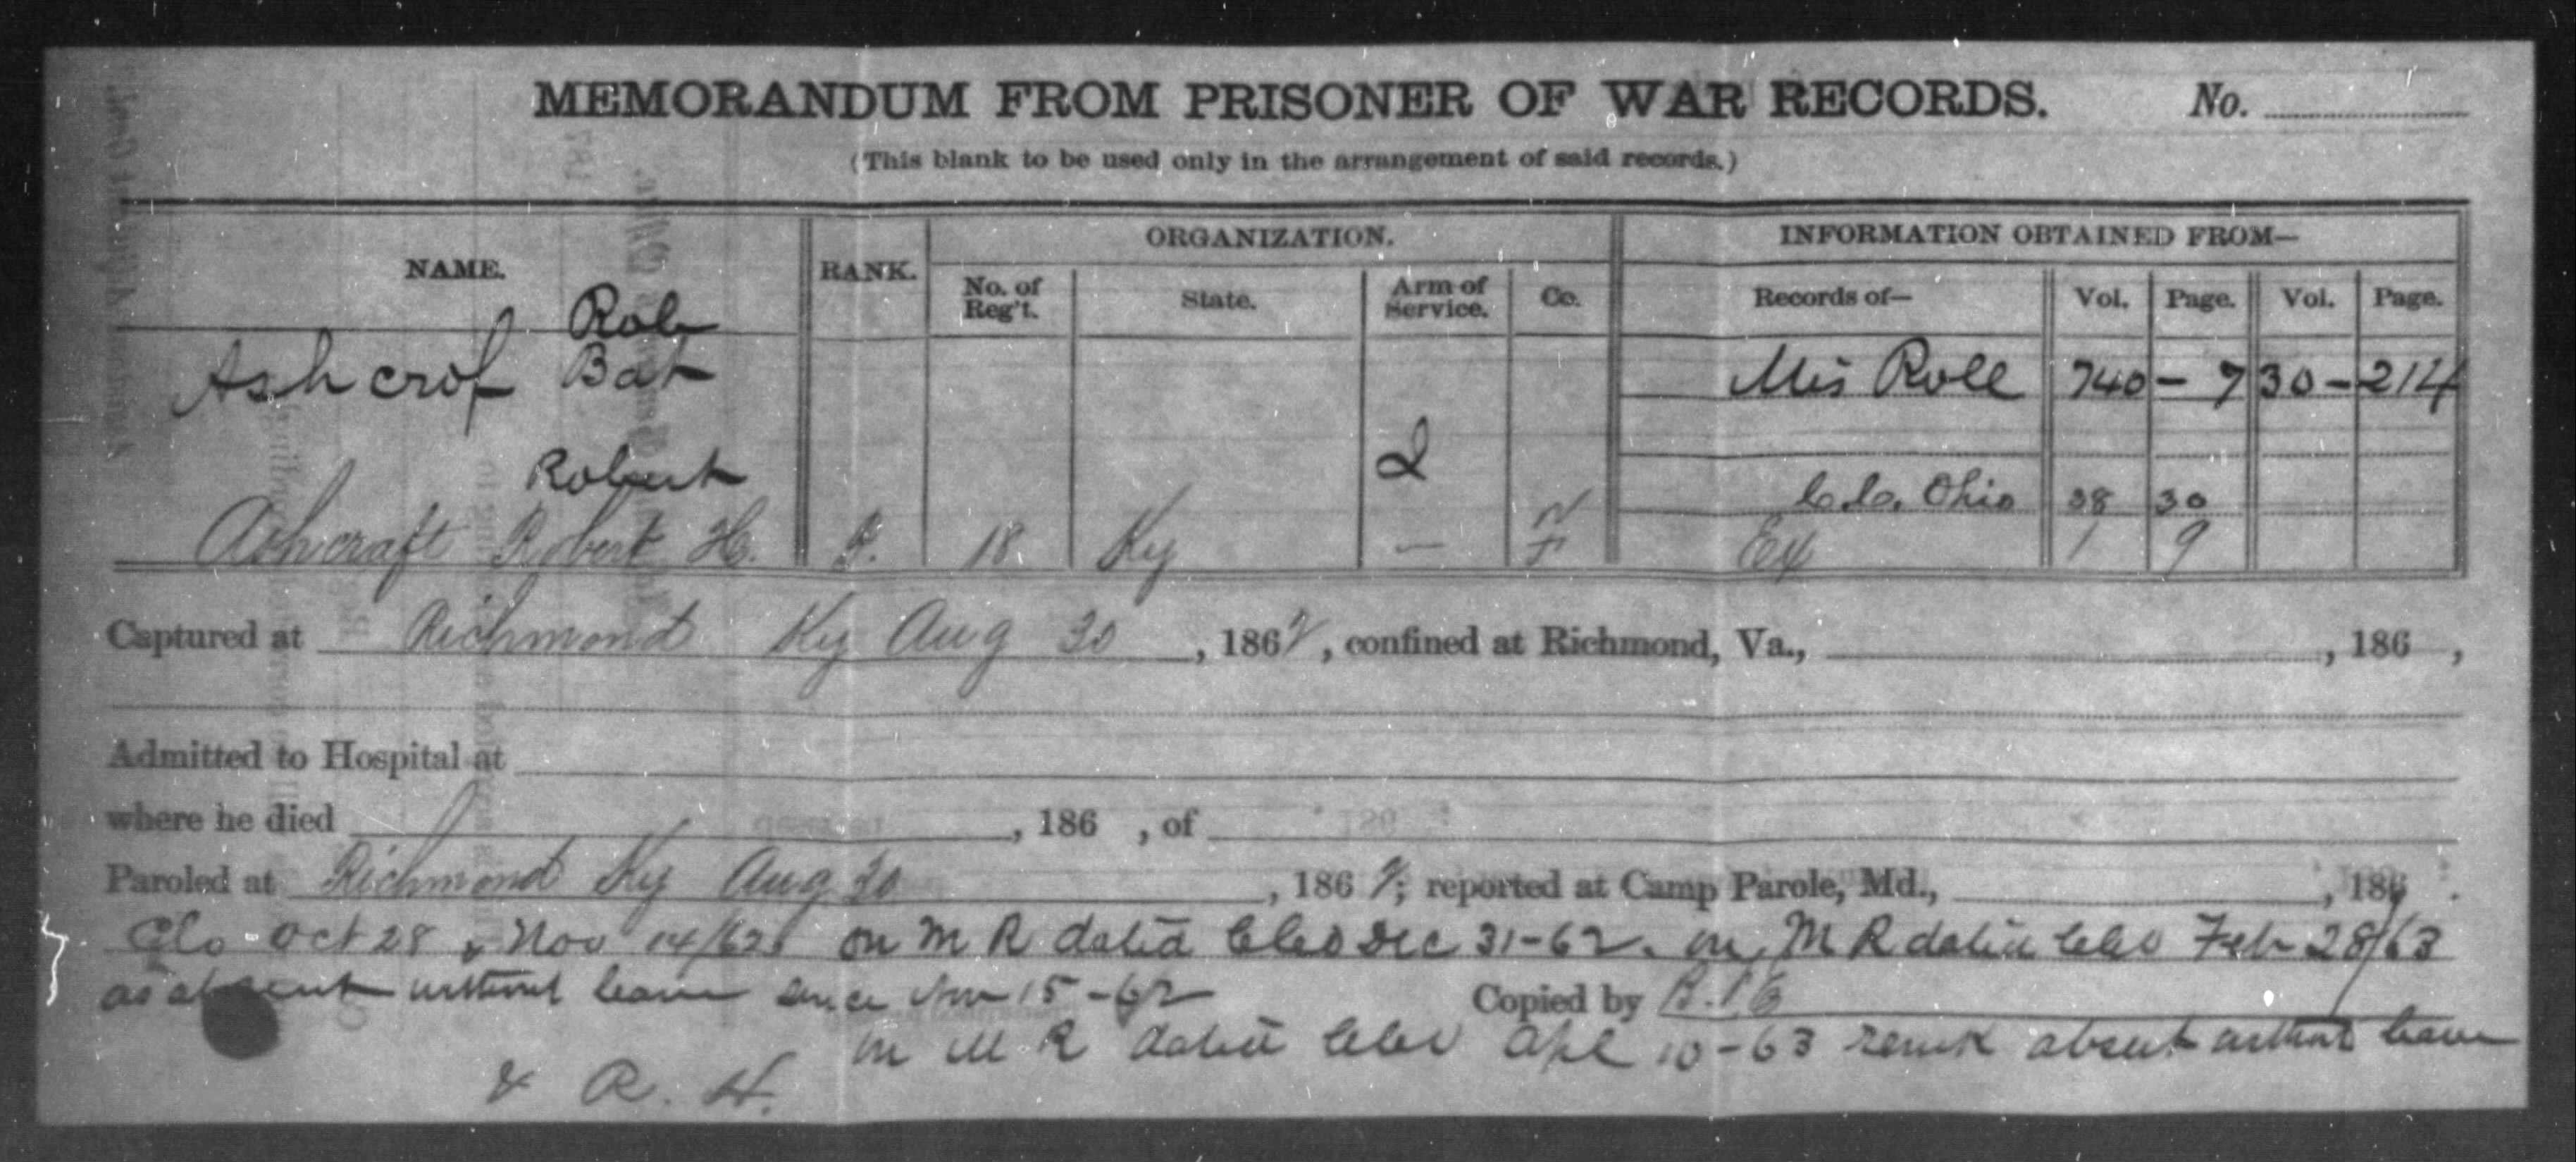 MEMORANDUM FROM PRISONER OF WAR RECORDS. No.
(This blank to be used only in the arrangement of said records.)
NAME. RANK. ORGANIZATION. INFORMATION OBTAINED FROM—
No. of Reg't. State. Arm of Service. Co. Records of— Vol. Page. Vol. Page.
Rob
Ashcrof Bat Mis Roll 740 - 7 30 - 214
Robert C.C. Ohio 38 30
Ashcraft Robert H. P. 18 Ky — F Ex 1 9
Captured at Richmond Ky Aug 30, 1862, confined at Richmond, Va., , 186 ,
Admitted to Hospital at
where he died , 186 , of
Paroled at Richmond Ky Aug 30, 1862; reported at Camp Parole, Md., , 186 .
Clo Oct 28 & Nov 14/62 on M R dated Cleo Dec 31-62. on M R dated Cleo Feb 28/63
as absent without leave since Nov 15-62 Copied by
on M R dated Cleo Apl 10-63 remk absent without leave
& R. H.